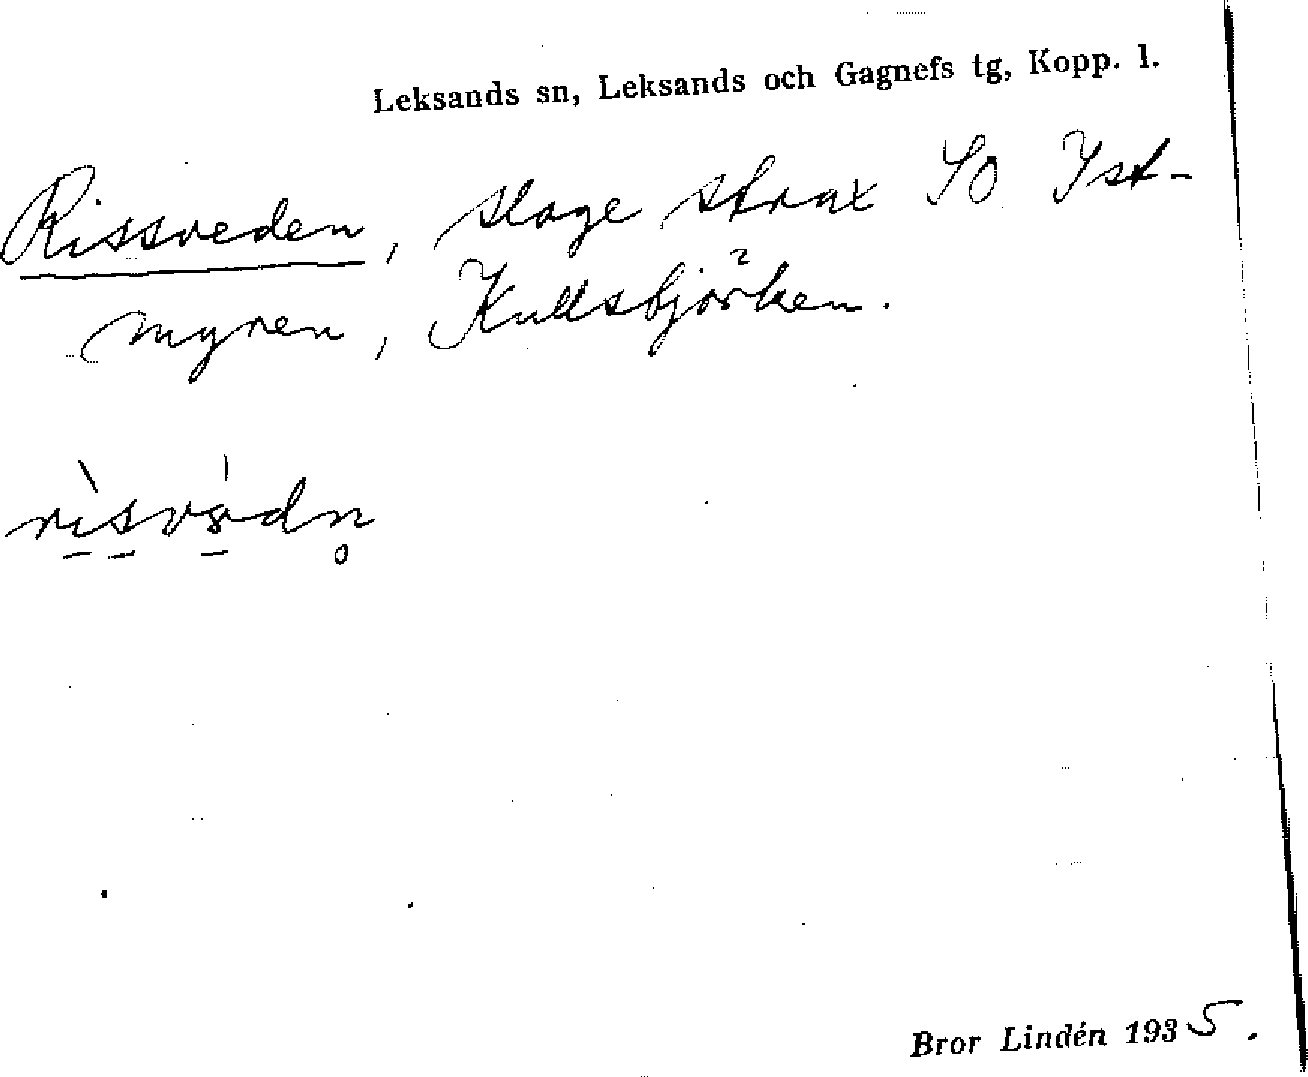 Leksands sn, Leksands och Gagnefs tg, Kopp. l.
Rissveden, sloge strax SO Yst-
myren, Kullsbjörken.
Bror Lindén 1935.